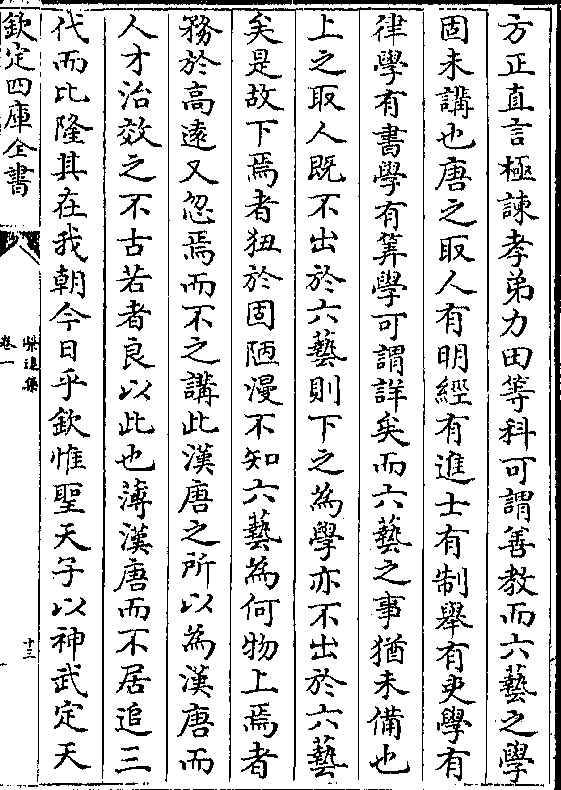 方正直言極諫孝弟力田等科可謂善教而六藝之學
固未講也唐之取人有明經有進士有制舉有吏學有
律學有書學有筭學可謂詳矣而六藝之事猶未備也
上之取人既不出於六藝則下之為學亦不出於六藝
矣是故下焉者狃於固陋漫不知六藝為何物上焉者
務於高遠又忽焉而不之講此漢唐之所以為漢唐而
人才治效之不古若者良以此也薄漢唐而不居追三
代而比隆其在我朝今日乎欽惟聖天子以神武定天
欽定四庫全書
卷一
十三